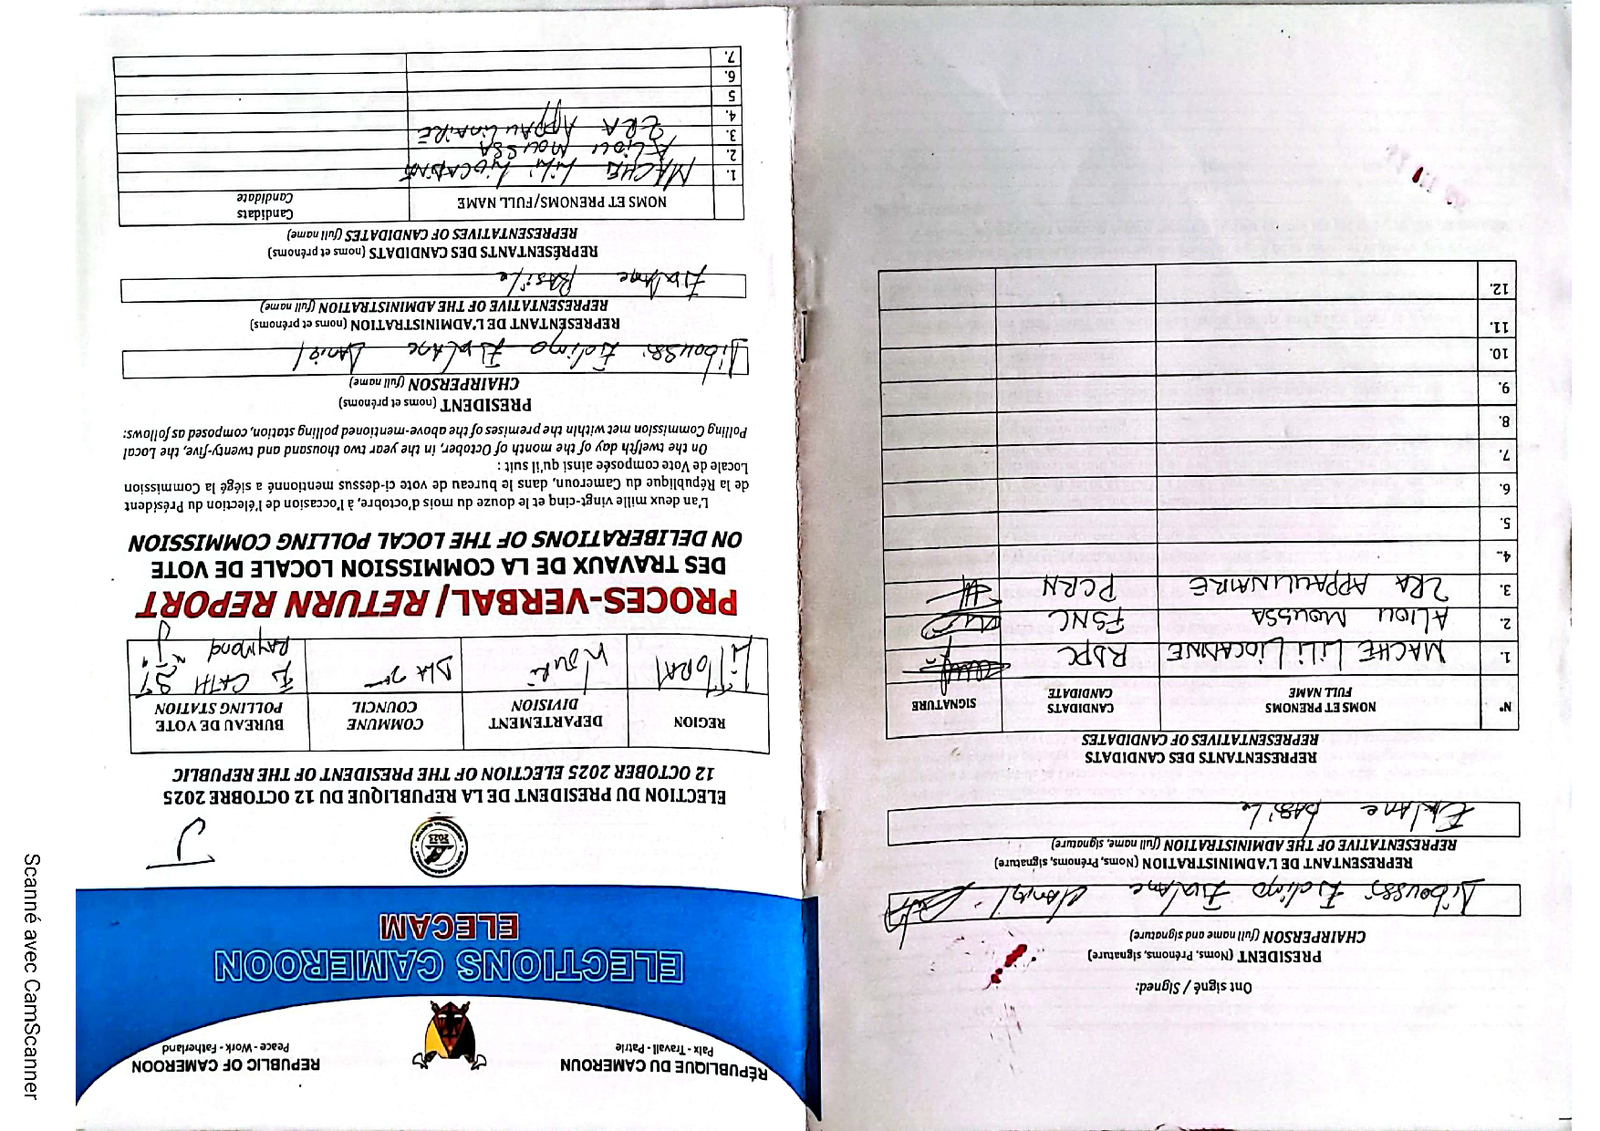 RÉPUBLIQUE DU CAMEROUN
Paix - Travail - Patrie
REPUBLIC OF CAMEROON
Peace - Work - Fatherland
ELECTIONS CAMEROON
ELECAM
ELECTION DU PRESIDENT DE LA REPUBLIQUE DU 12 OCTOBRE 2025
12 OCTOBER 2025 ELECTION OF THE PRESIDENT OF THE REPUBLIC
REGION
DEPARTEMENT
DIVISION
COMMUNE
COUNCIL
BUREAU DE VOTE
POLLING STATION
LITTORAL
WOURI
DLA
CATH
RAYMOND
PROCES-VERBAL/ RETURN REPORT
DES TRAVAUX DE LA COMMISSION LOCALE DE VOTE
ON DELIBERATIONS OF THE LOCAL POLLING COMMISSION
L'an deux mille vingt-cinq et le douze du mois d'octobre, à l'occasion de l'élection du Président
de la République du Cameroun, dans le bureau de vote ci-dessus mentionné a siégé la Commission
Locale de Vote composée ainsi qu'il suit :
On the twelfth day of the month of October, in the year two thousand and twenty-five, the Local
Polling Commission met within the premises of the above-mentioned polling station, composed as follows:
PRESIDENT (noms et prénoms)
CHAIRPERSON (full name)
Diboussi Edimo Ebolane Daniel
REPRÉSENTANT DE L'ADMINISTRATION (noms et prénoms)
REPRESENTATIVE OF THE ADMINISTRATION (full name)
Basile
REPRÉSENTANTS DES CANDIDATS (noms et prénoms)
REPRESENTATIVES OF CANDIDATES (full name)
NOMS ET PRENOMS/FULL NAME
Candidats
Candidate
1. MACHE LILI LIOCADNE
2. ALIOU MOUSSA
3. ZRA APPAULINAIRE
4.
5
6.
7.
Ont signé / Signed:
PRESIDENT (Noms, Prénoms, signature)
CHAIRPERSON (full name and signature)
Diboussi Edimo Ebolane Daniel
REPRESENTANT DE L'ADMINISTRATION (Noms, Prénoms, signature)
REPRESENTATIVE OF THE ADMINISTRATION (full name, signature)
Basile
REPRESENTANTS DES CANDIDATS
REPRESENTATIVES OF CANDIDATES
N° NOMS ET PRENOMS
FULL NAME
CANDIDATS
CANDIDATE
SIGNATURE
1. MACHE LILI LIOCADNE RDPC
2. ALIOU MOUSSA FSNC
3. ZRA APPAULINAIRE PCRN
4.
5.
6.
7.
8.
9.
10.
11.
12.
Scanné avec CamScanner